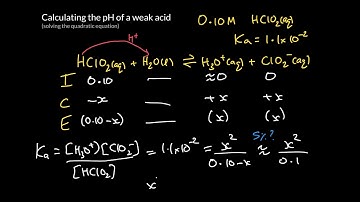 Calculating the pH of a weak acid
(solving the quadratic equation)
0.10M HClO₂(aq)
Ka = 1.1×10⁻²
H⁺
HClO₂(aq) + H₂O(l) ⇌ H₃O⁺(aq) + ClO₂⁻(aq)
I 0.10 — ≈0 0
C -x — +x +x
E (0.10-x) — (x) (x)
Ka = [H₃O⁺][ClO₂⁻] / [HClO₂] = 1.1×10⁻² = x² / 0.10-x ≈ x² / 0.1
5%?
x